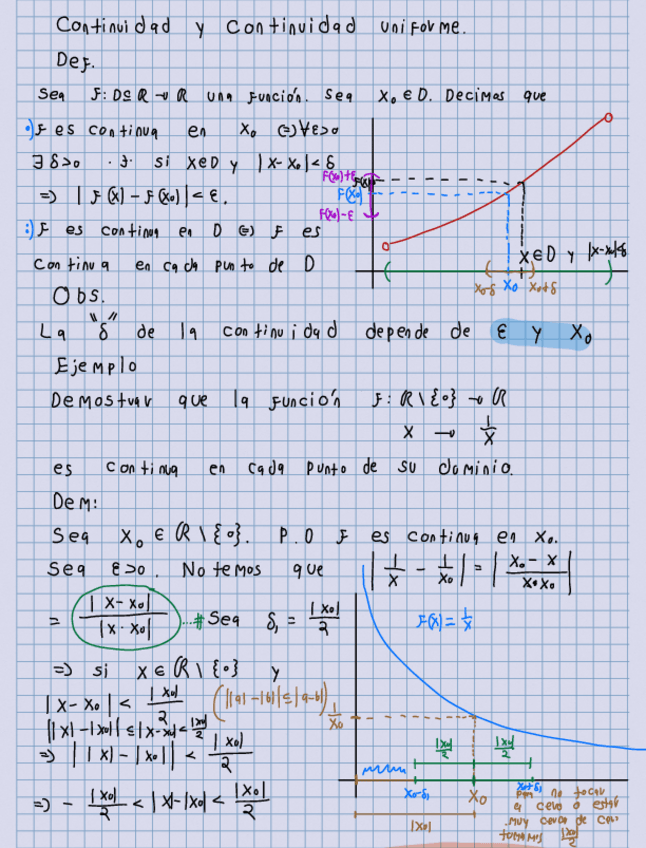 Continuidad y Continuidad uniforme.
Def.
Sea F: D⊆ℝ → ℝ una Función. Sea X₀ ∈ D. Decimos que
•) F es continua en X₀ ⇔ ∀ε>0
∃ δ>0 ·∋· si x∈D y |x-x₀|<δ
⇒ | F(x) - F(x₀)| < ε.
:) F es continua en D ⇔ F es
Continua en cada punto de D
F(x₀)+ε
F(x)
F(x₀)
F(x₀)-ε
X ∈ D y |x-x₀|<δ
X₀-δ X₀ X₀+δ
Obs.
La "δ" de la continuidad depende de ε y X₀
Ejemplo
Demostrar que la Función F: ℝ\{0} → ℝ
X → 1/X
es continua en cada punto de su dominio.
Dem:
Sea X₀ ∈ ℝ\{0}. P.D F es continua en X₀.
Sea ε>0. Notemos que | 1/X - 1/X₀ | = | (X₀ - X)/(X·X₀) |
= |X-X₀| / |X·X₀| ...# Sea δ₁ = |X₀|/2
⇒ si X∈ℝ\{0} y
|X-X₀| < |X₀|/2 (||a|-|b|| ≤ |a-b|)
||X|-|X₀|| ≤ |X-X₀| < |X₀|/2
⇒ ||X| - |X₀|| < |X₀|/2
⇒ - |X₀|/2 < |X|-|X₀| < |X₀|/2
F(x) = 1/X
1/X₀
|X₀|/2 |X₀|/2
X₀-δ₁ X₀ X₀+δ₁
|X₀|
para no tocar
el cero o estar
muy cerca de cero
tomamos |X₀|/2